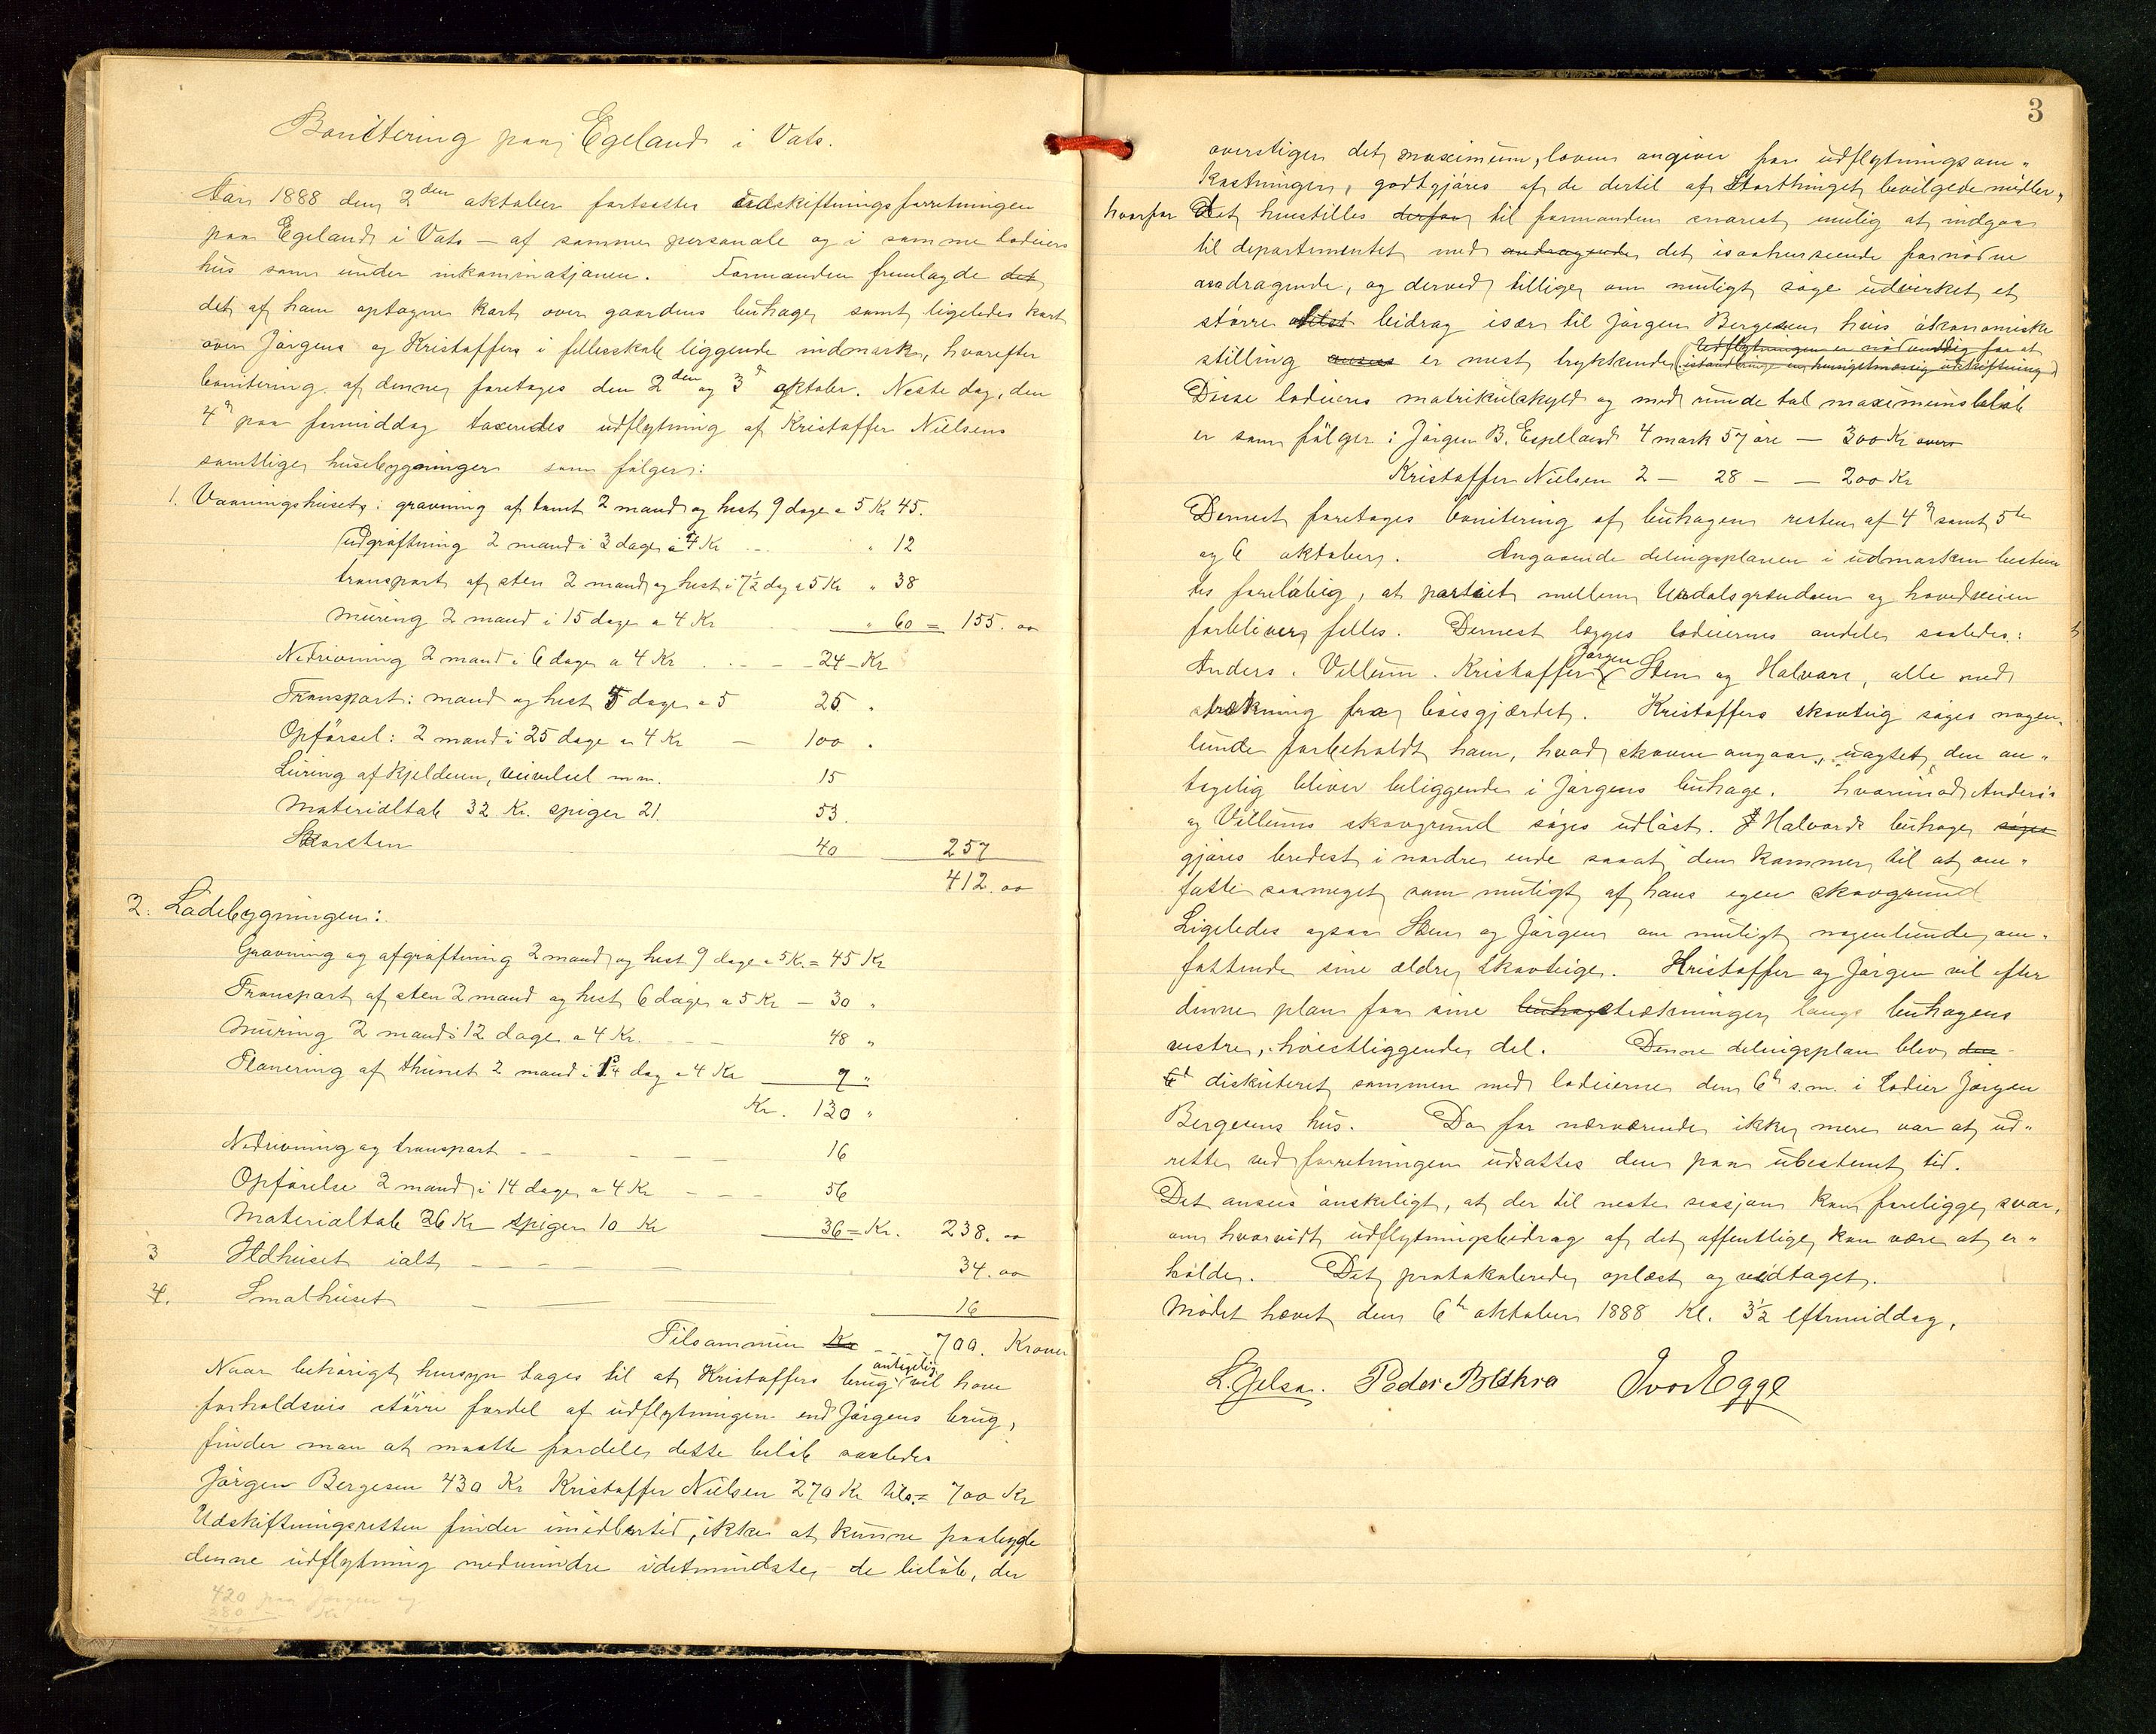 Bonitering paa Egeland i Vats.
Aar 1888 den 2den oktober fortsattes udskiftningsforretningen
paa Egeland i Vats – af samme personale og i samme lodeiers
hus som under inkaminasjonen. Formanden fremlagde det
det af ham optagne kart over gaardens buhage samt ligeledes kart
over Jørgens og Kristoffers i fellesskab liggende indmark, hvorefter
bonitering af denne foretages den 2den og 3d oktober. Neste dag, den
4d paa formiddag taxeredes udflytning af Kristoffer Nielsens
samtlige husebygninger som følger:
1. Vaaningshuset: gravning af tomt 2 mand og hest 9 dage a 5 Kr 45.
udgrøftning 2 mand i 3 dage a 4 Kr " 12
transport af sten 2 mand og hest i 7½ dag a 5 Kr " 38
Muring 2 mand i 15 dage a 4 Kr " 60 = 155. oo
Nedrivning 2 mand i 6 dage a 4 Kr 24 Kr
Transport: mand og hest 5 dage a 5 25 "
Opførsel: 2 mand i 25 dage a 4 Kr – 100 "
Luring af kjelderen, m.m. 15
Materialtab 32 Kr. spiger 21. 53.
Skorsten 40 257
412. oo
2. Ladebygningen:
Gravning og afgrøftning 2 mand og hest 9 dage a 5 Kr. = 45 Kr
Transport af sten 2 mand og hest 6 dage a 5 Kr – 30 "
Muring 2 mand i 12 dage a 4 Kr. 48 "
Planering af thunet 2 mand i 1¾ dag a 4 Kr 7 "
Kr. 130 "
Nedrivning og transport – – – 16
Opførelse 2 mand i 14 dage a 4 Kr – – – 56
Materialtab 26 Kr spiger 10 Kr 36 = Kr. 238. oo
3 Ildhuset ialt – – – 34. oo
4. Smalhuset – – 16
Tilsammen Kr – – 700. Kroner
Naar behørigt hensyn tages til at Kristoffers brug antagelig vil have
forholdsvis større fordel af udflytningen end Jørgens brug,
finder man at maatte fordele dette beløb saaledes
Jørgen Bergesen 430 Kr Kristoffer Nielsen 270 Kr tils. = 700 Kr
Udskiftningsretten finder imidlertid, ikke at kunne paalegge
denne udflytning medmindre idetmindste de beløb, der
420 paa Jørgen og
280 – Kr
700
3
overstiger det maximum, loven angiver for udflytningsom-
kostninger, godtgjøres af de dertil af Storthinget bevilgede midler,
hvorfor Det henstilles derfor til formanden snarest mulig at indgaa
til departementet med andragende det isaahenseende fornødne
andragende, og derved tillige om muligt søge udvirket et
større bidrag især til Jørgen Bergesen hvis økonomiske
stilling ansees er mest trykkende (Udflytningen er nødvendig for at
istandbringe en hensigtsmæssig udskiftning)
Disse lodeieres matrikulskyld og med runde tal maximumsbeløb
er som følger: Jørgen B. Espeland 4 mark 57 øre – 300 Kr
Kristoffer Nielsen 2 – 28 – – 200 Kr
Dernest foretages bonitering af buhagen resten af 4d samt 5te
og 6 oktober. Angaaende delingsplanen i udmarken bestem
tes foreløbig, at partiet mellem Urdalsgrenden og hovedveien
forbliver felles. Dernest lægges lodeiernes andele saaledes:
Anders. Villum. Kristoffer Jørgen Sten og Halvor, alle med
strækning fra bøisgjærdet. Kristoffers skovteig søges nogen-
lunde forbeholdt ham, hvad skoven angaar, uagtet den an-
tagelig bliver beliggende i Jørgens buhage. Hvorimod Anders's
og Villums skovgrund søges udløst. Halvords buhage søges
gjøres bredest i nordre ende saaat den kommer til at om-
fatte saameget som muligt af hans egen skovgrund
Ligeledes ogsaa Sten og Jørgen om muligt nogenlunde om-
fattende sine ældre skovteige. Kristoffer og Jørgen vil efter
denne plan faa sine buhagstrækninger langs buhagens
vestre, høiestliggende del. Denne delingsplan blev den
6d diskuteret sammen med lodeierne den 6d s.m. i lodeier Jørgen
Bergesens hus. Da for nærværende ikke mere var at ud-
rette ved forretningen udsattes den paa ubestemt tid.
Det ansees ønskeligt, at der til neste sessjon kan foreligge svar,
om hvorvidt udflytningsbidrag af det offentlige kan være at er-
holde. Det protokolerede oplæst og vedtaget.
Mødet hævet den 6d oktober 1888 Kl. 3½ eftermiddag.
L. Jelsa. Peder B Ihra Ivar Egge